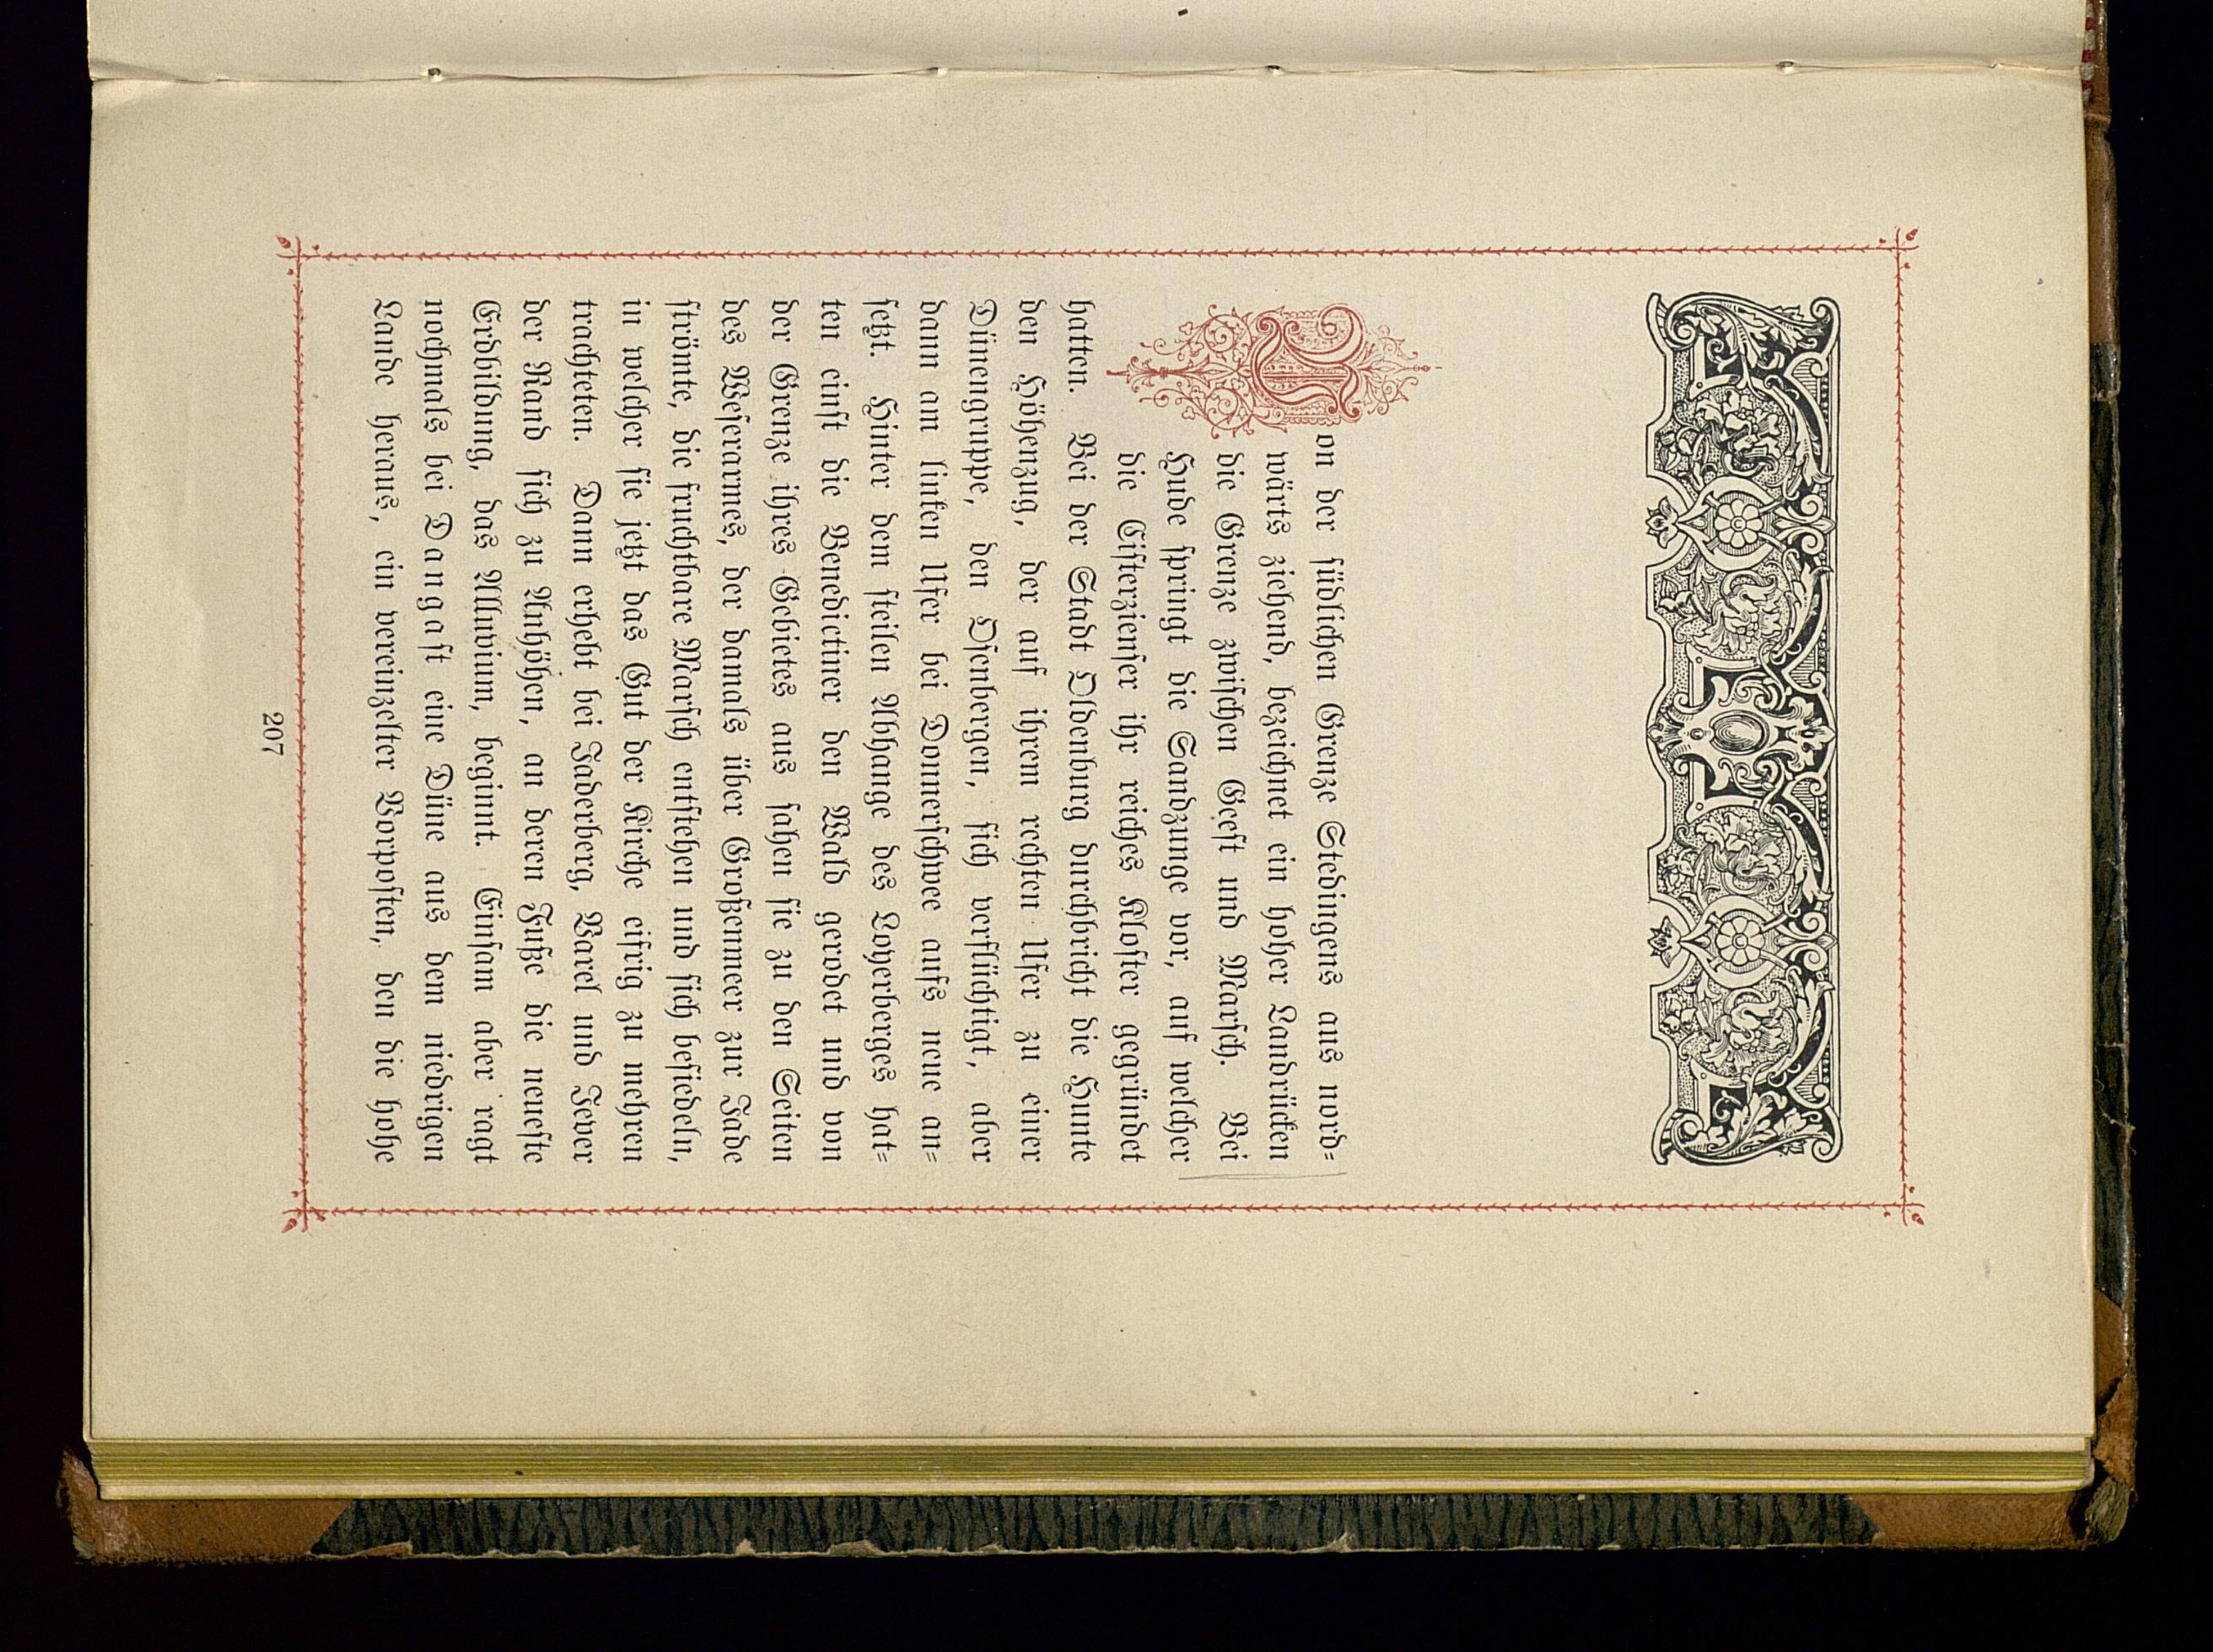 Von der südlichen Grenze Stedingens aus nord-
wärts ziehend, bezeichnet ein hoher Landrücken
die Grenze zwischen Geest und Marsch. Bei
Hude springt die Sandzunge vor, auf welcher
die Cisterzienser ihr reiches Kloster gegründet
hatten. Bei der Stadt Oldenburg durchbricht die Hunte
den Höhenzug, der auf ihrem rechten Ufer zu einer
Dünengruppe, den Osenbergen, sich verflüchtigt, aber
dann am linken Ufer bei Donnerschwee aufs neue an-
setzt. Hinter dem steilen Abhange des Loyerberges hat-
ten einst die Benedictiner den Wald gerodet und von
der Grenze ihres Gebietes aus sahen sie zu den Seiten
des Weserarmes, der damals über Großenmeer zur Jade
strömte, die fruchtbare Marsch entstehen und sich besiedeln,
in welcher sie jetzt das Gut der Kirche eifrig zu mehren
trachteten. Dann erhebt bei Jaderberg, Varel und Jever
der Rand sich zu Anhöhen, an deren Fuße die neueste
Erdbildung, das Alluvium, beginnt. Einsam aber ragt
nochmals bei Dangast eine Düne aus dem niedrigen
Lande heraus, ein vereinzelter Vorposten, den die hohe
207